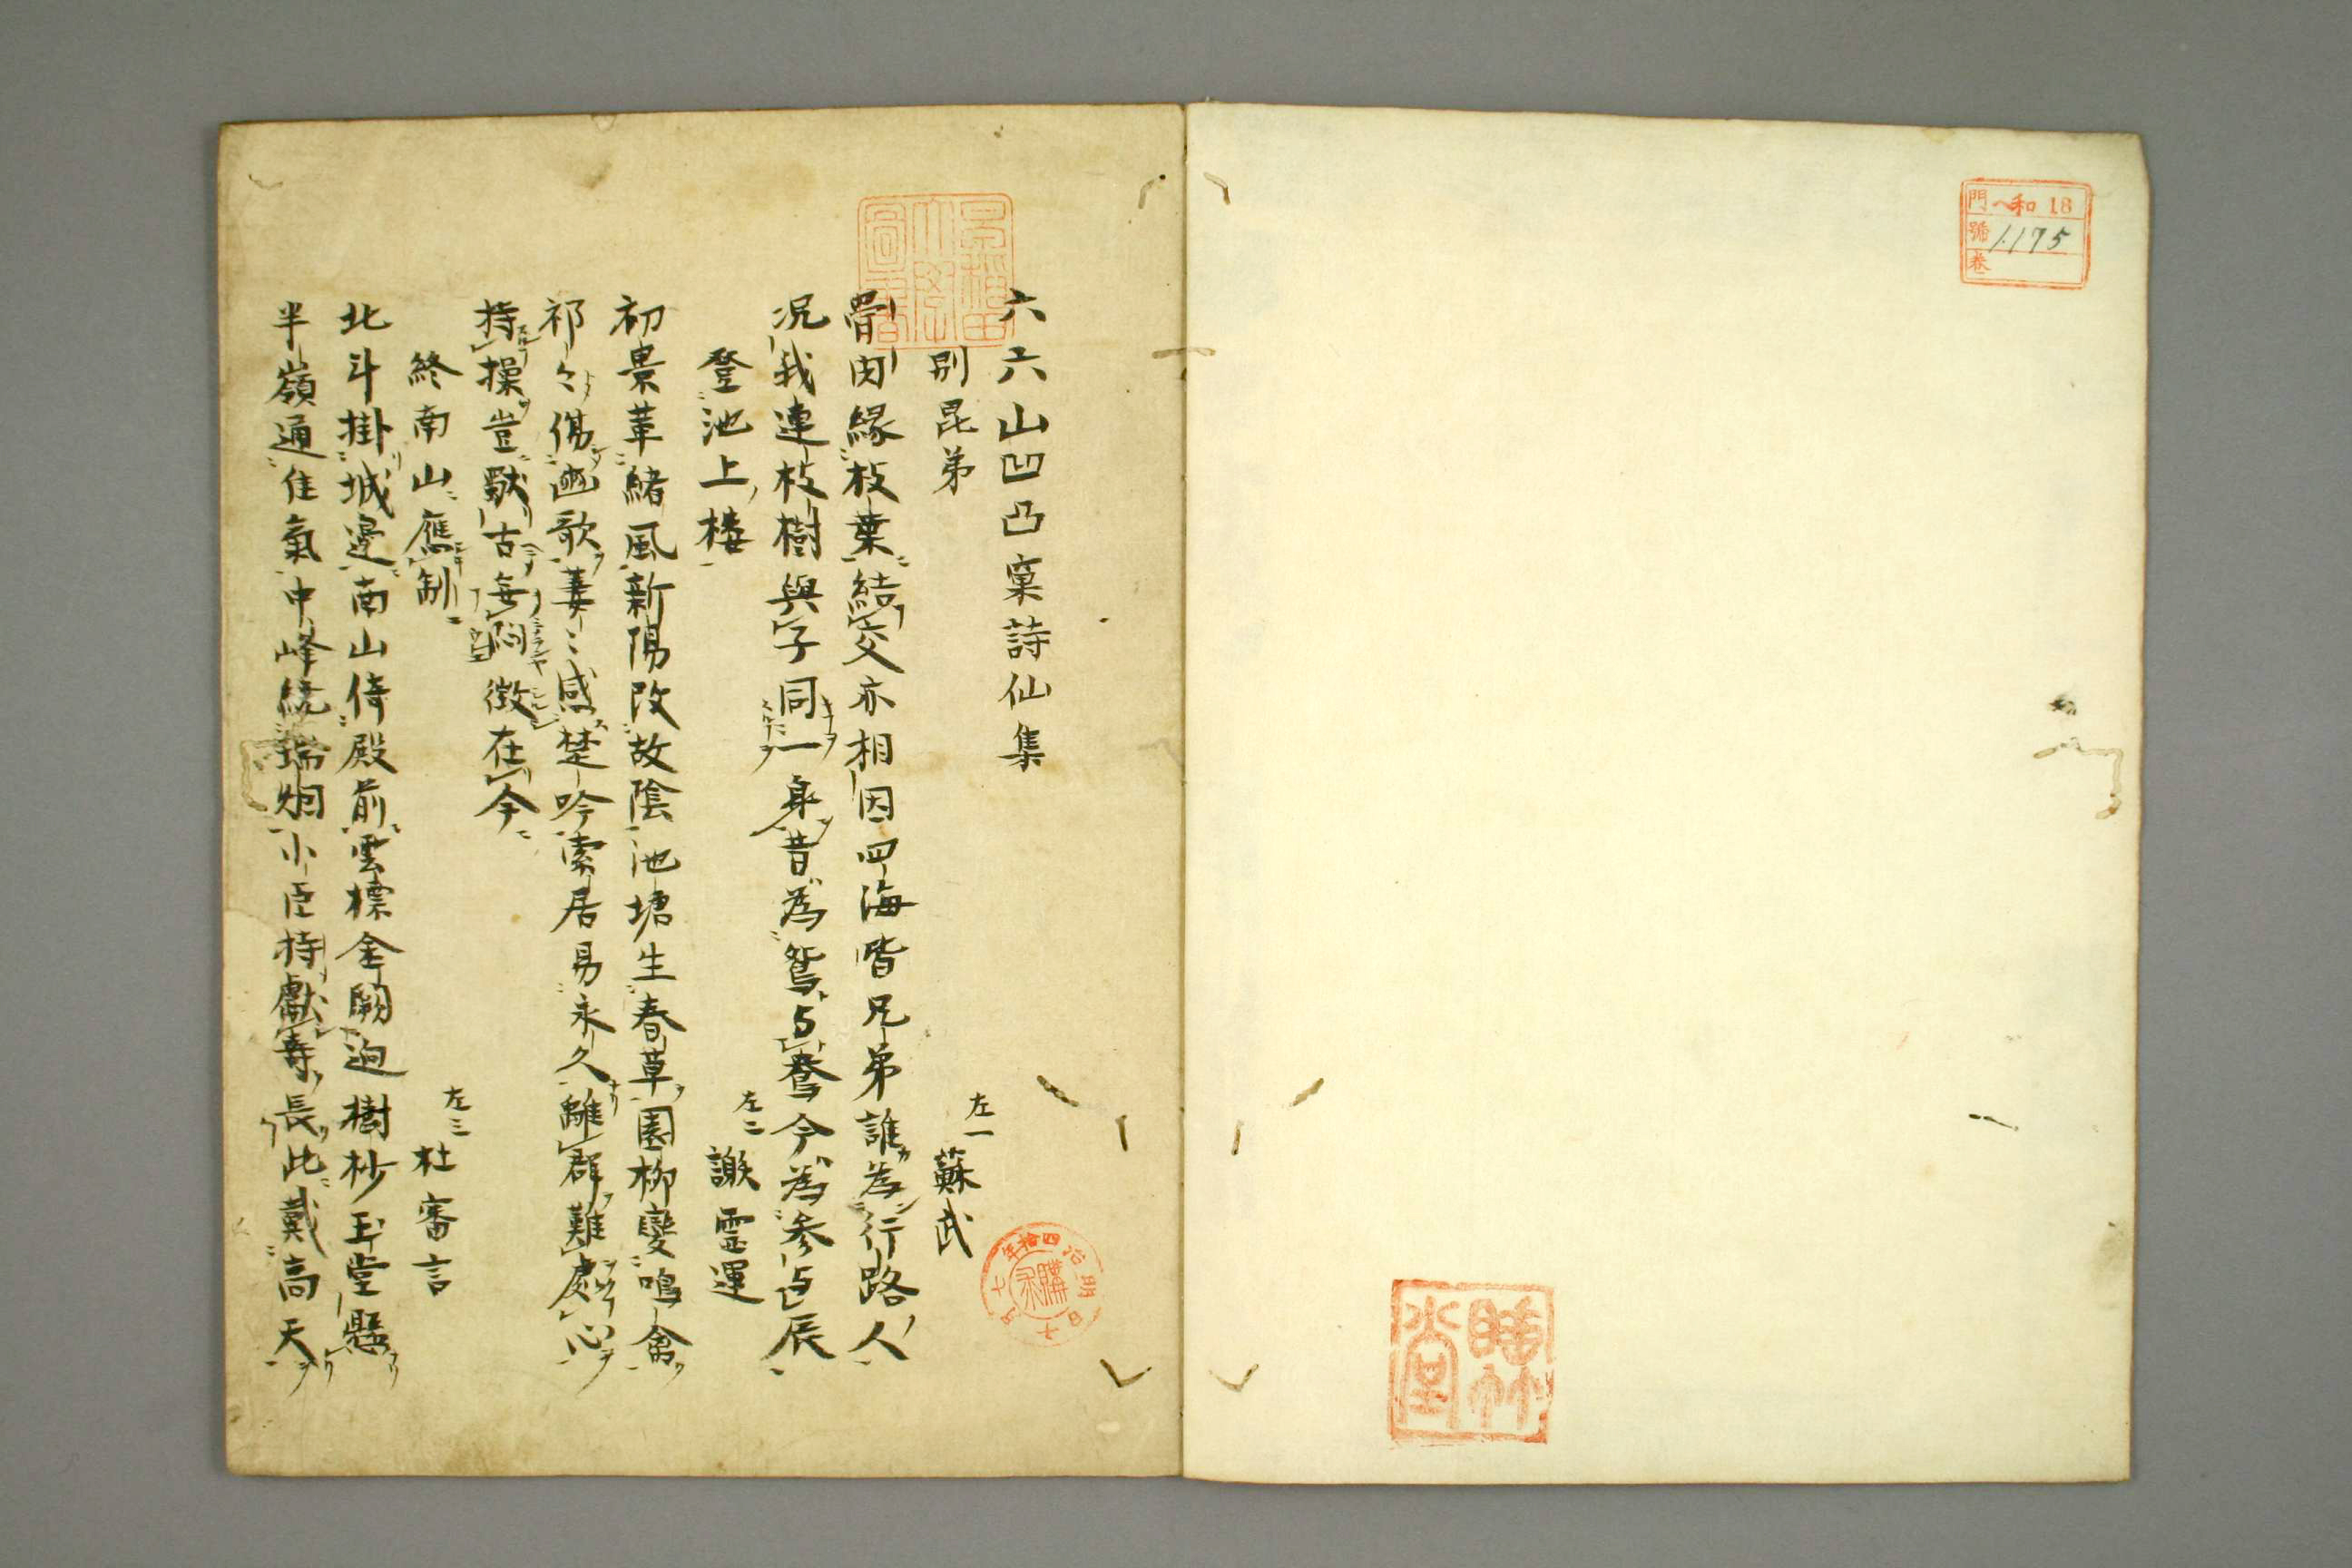 門 ヘ和 18
號 1175
卷
睡竹堂
早稲田大學圖書
六六山凹凸窠詩仙集
別昆弟 左一 蘇武
骨肉縁枝葉結交亦相因四海皆兄弟誰為行路人
况我連枝樹與子同一身昔為鴛与鴦今為参与辰
登池上樓 左二 謝霊運
初景革緒風新陽改故陰池塘生春草園柳變鳴禽
祁々傷豳歌萋〻感楚吟索居易永久離群難處心
持操豈獣古無悶徴在今
終南山應制 左三 杜審言
北斗掛城邊南山倚殿前雲標金闕迥樹杪玉堂懸
半嶺通佳氣中峰繞瑞烟小臣持獻壽長此戴高天
明治四拾年七月十日購求